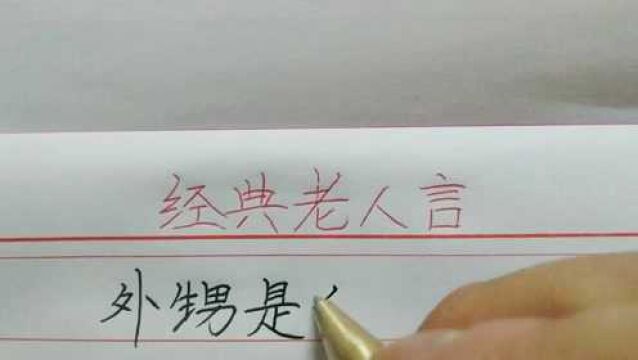 经典老人言
外甥是